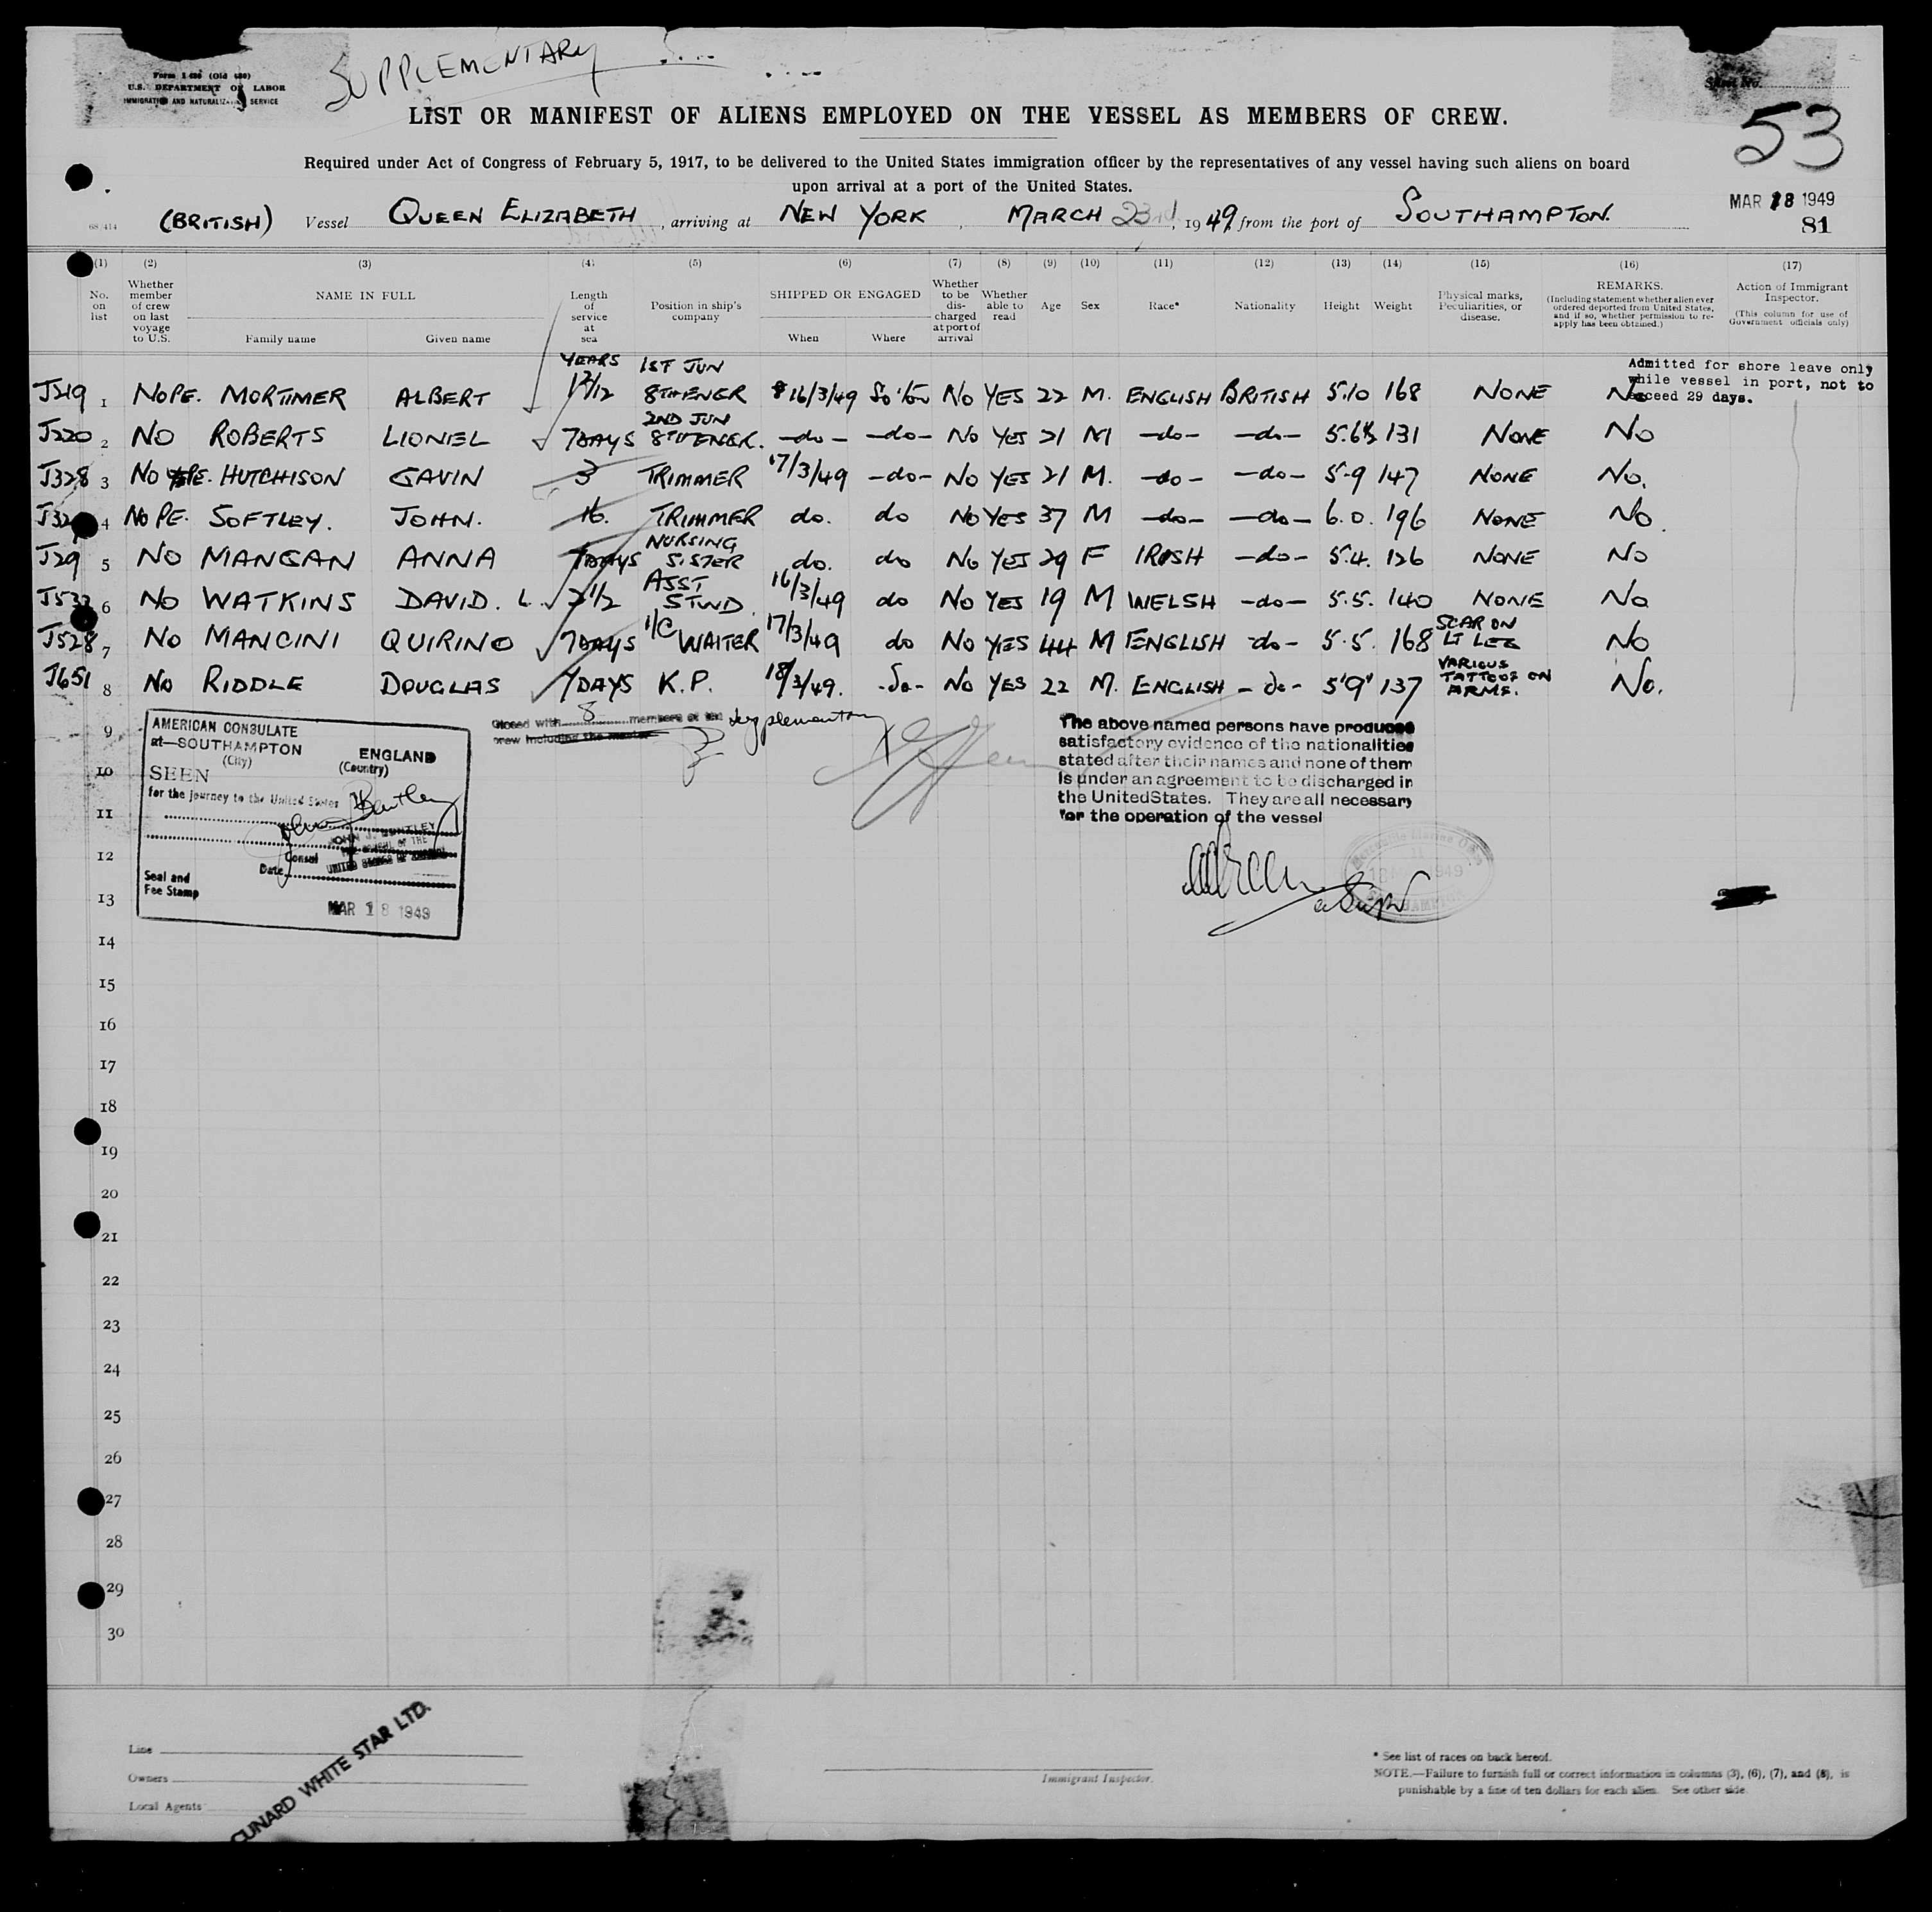 SUPPLEMENTARY
Form I 480 (Old 680)
U.S. DEPARTMENT OF LABOR
IMMIGRATION AND NATURALIZATION SERVICE
Sheet No.
53
LIST OR MANIFEST OF ALIENS EMPLOYED ON THE VESSEL AS MEMBERS OF CREW.
Required under Act of Congress of February 5, 1917, to be delivered to the United States immigration officer by the representatives of any vessel having such aliens on board
upon arrival at a port of the United States.
MAR 18 1949
81
(BRITISH) Vessel QUEEN ELIZABETH, arriving at NEW YORK, MARCH 23rd, 1949, from the port of SOUTHAMPTON.
(1) (2) (3) (4) (5) (6) (7) (8) (9) (10) (11) (12) (13) (14) (15) (16) (17)
No. on list
Whether member of crew on last voyage to U.S.
NAME IN FULL
Family name Given name
Length of service at sea
Position in ship's company
SHIPPED OR ENGAGED
When Where
Whether to be discharged at port of arrival
Whether able to read
Age Sex Race* Nationality Height Weight
Physical marks, Peculiarities, or disease.
REMARKS.
(Including statement whether alien ever ordered deported from United States, and if so, whether permission to re-apply has been obtained.)
Action of Immigrant Inspector.
(This column for use of Government officials only)
Admitted for shore leave only
while vessel in port, not to
exceed 29 days.
YEARS 1ST JUN
J219 1 NO PE. MORTIMER ALBERT 1 2/12 8TH ENGR 16/3/49 So'ton NO YES 22 M. ENGLISH BRITISH 5.10 168 NONE No
2ND JUN
J220 2 NO ROBERTS LIONEL 7 DAYS 8TH ENGR. -do- -do- No YES 21 M -do- -do- 5.6½ 131 NONE No
J328 3 NO PE. HUTCHISON GAVIN 3 TRIMMER 17/3/49 -do- NO YES 21 M. -do- -do- 5-9 147 NONE No.
4 NO PE. SOFTLEY. JOHN. 16. TRIMMER do. do NO YES 37 M -do- -do- 6.0. 196 NONE No.
NURSING
J29 5 NO MANGAN ANNA 7 DAYS SISTER do. do No YES 29 F IRISH -do- 5.4. 126 NONE No
ASST
6 NO WATKINS DAVID. L. 2 1/2 STWD. 16/3/49 do NO YES 19 M WELSH -do- 5.5. 140 NONE No
SCAR ON
J528 7 NO MANCINI QUIRINO 7 DAYS 1/C WAITER 17/3/49 do NO YES 44 M ENGLISH -do- 5.5. 168 LT LEG No
VARIOUS
TATTOOS ON
J651 8 No RIDDLE DOUGLAS 7 DAYS K.P. 18/3/49. -do- No YES 22 M. ENGLISH -do- 5'9" 137 ARMS. No.
Closed with 8 members of the supplementary
crew including the master
AMERICAN CONSULATE
at—SOUTHAMPTON ENGLAND
(City) (Country)
SEEN
for the journey to the United States
Consul
Date
UNITED STATES OF AMERICA
Seal and
Fee Stamp
MAR 18 1949
The above named persons have produced
satisfactory evidence of the nationalities
stated after their names and none of them
is under an agreement to be discharged in
the United States. They are all necessary
for the operation of the vessel
9
10
11
12
13
14
15
16
17
18
19
20
21
22
23
24
25
26
27
28
29
30
Line
Owners
Local Agents
CUNARD WHITE STAR LTD.
Immigrant Inspector.
* See list of races on back hereof.
NOTE.—Failure to furnish full or correct information in columns (3), (6), (7), and (8), is
punishable by a fine of ten dollars for each alien. See other side.